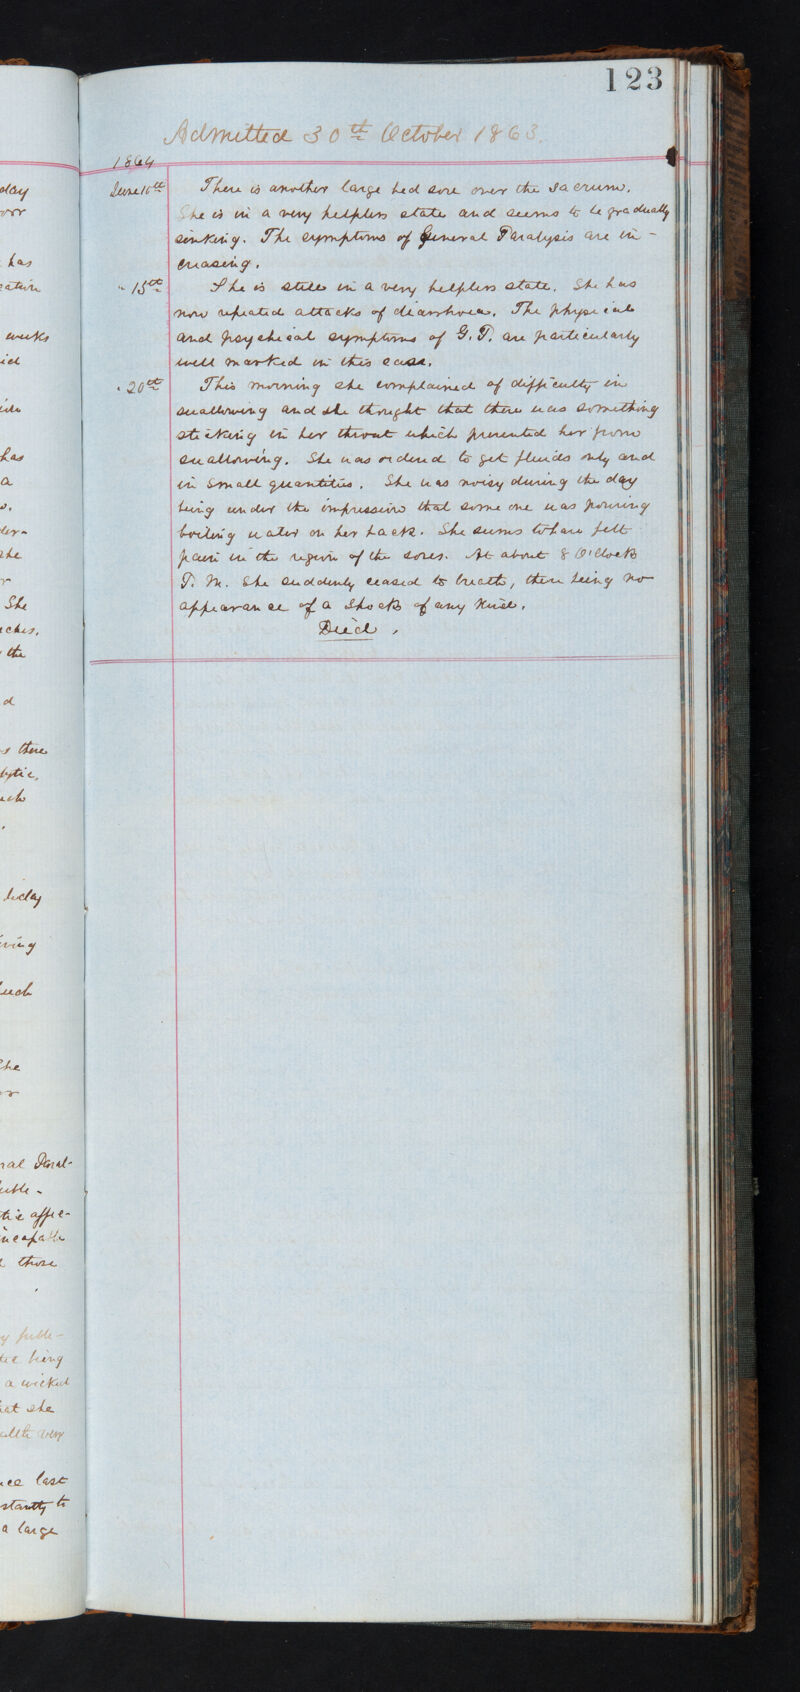 day
orr
has
weeks
has
a
she
She
the
d
there
such
today
she
ral Paral-
incapable
those
being
a wicked
hat she
very
nce last
stantly to
a large
123
Admitted 30th October 1863.
1864
June 10th There is another large bed sore over the sacrum.
She is in a very helpless state and seems to be gradually
sinking. The symptoms of General Paralysis are in-
creasing.
" 15th She is still in a very helpless state. She has
now repeated attacks of diarrhoea. The physical
and psychical symptoms of G.P. are particularly
well marked in this case.
" 20th This morning she complained of difficulty in
swallowing and she thought that there was something
sticking in her throat which prevented her from
swallowing. She was ordered to get fluids only and
in small quantities. She was noisy during the day
being under the impression that some one was pouring
boiling water on her back. She seems to have felt
pain in the region of the sores. At about 8 O'Clock
P.M. she suddenly ceased to breath, there being no
appearance of a shock of any kind.
Died.